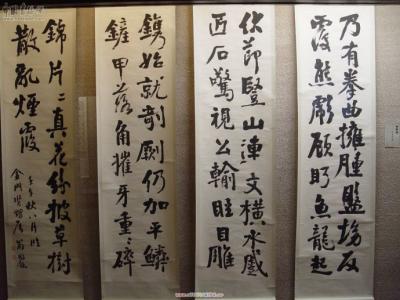 乃有拳曲擁腫盤坳反
覆熊彪顧盼魚龍起
伏節豎山連文橫水蹙
匠石驚視公輸眩目雕
鐫始就剞劂仍加平鱗
鏟甲落角摧牙重々碎
錦片々真花紛披草樹
散亂煙霞